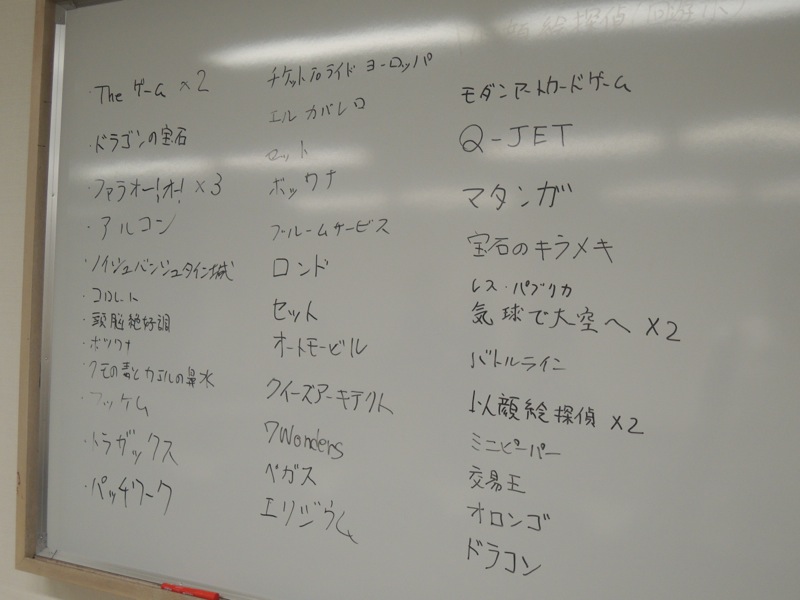 ・The ゲーム ×2
・ドラゴンの宝石
・ファラオー!オー! ×3
・アルコン
・ノイシュバンシュタイン城
・コロレット
・頭脳絶好調
・ボツワナ
・クモの毒とカエルの鼻水
・フッケム
・トラガックス
・パッチワーク
チケットトゥライド ヨーロッパ
エル カバレロ
ロット
ボッワナ
ブルームサービス
ロンド
セット
オートモービル
クイーズアーキテクト
7Wonders
ペガス
エリジウム
モダンアートカードゲーム
Q-JET
マタンガ
宝石のキラメキ
レス・パブリカ
気球で大空へ ×2
バトルライン
似顔絵探偵 ×2
ミニピーパー
交易王
オロンゴ
ドラコン